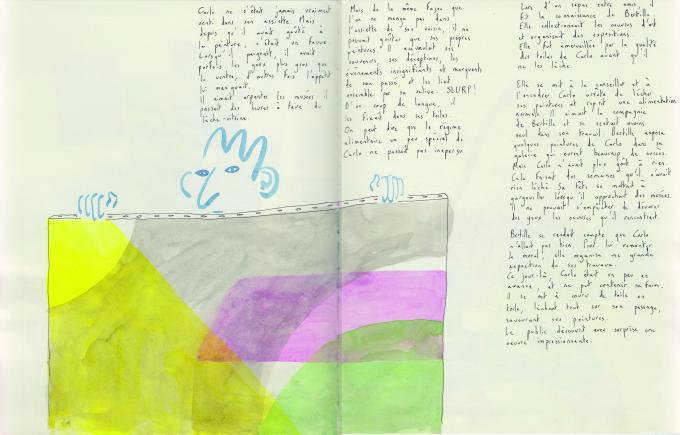 Carlo ne s'était jamais vraiment
senti dans son assiette. Mais
depuis qu'il avait goûté à
la peinture, c'était un fauve.
Lorsqu'il peignait, il avait
parfois les yeux plus gros que
le ventre, d'autres fois l'appétit
lui manquait.
Il aimait arpenter les musées il
passait des heures à faire du
lèche-vitrine.
Mais de la même façon que
l'on ne mange pas dans
l'assiette de son voisin, il ne
pouvait goûter que ses propres
peintures. Il accumulait ses
souvenirs, ses déceptions, les
évènements insignifiants et marquants
de son passé, et les liait
ensemble par sa salive. SLURP!
D'un coup de langue, il
les fixait dans ses toiles.
On peut dire que le régime
alimentaire un peu spécial de
Carlo ne passait pas inaperçu.
Lors d'un repas entre amis, il
fit la connaissance de Bertille.
Elle collectionnait les oeuvres d'art
et organisait des expositions.
Elle fut émerveillée par la qualité
des toiles de Carlo avant qu'il
ne les lèche.
Elle se mit à le conseiller et à
l'encadrer. Carlo arrêta de lécher
ses peintures et reprit une alimentation
normale. Il aimait la compagnie
de Bertille et se sentait moins
seul dans son travail. Bertille exposa
quelques peintures de Carlo dans sa
galerie qui eurent beaucoup de succès.
Mais Carlo n'avait plus goût à rien.
Cela faisait des semaines qu'il n'avait
rien léché. Sa tête se mettait à
gargouiller lorsqu'il approchait des musées.
Il ne pouvait s'empêcher de dévorer
des yeux les oeuvres qu'il rencontrait.
Bertille se rendait compte que Carlo
n'allait pas bien. Pour lui remonter
le moral, elle organisa une grande
exposition de ses travaux.
Ce jour-là Carlo était un peu en
avance, et ne put contenir sa faim.
Il se mit à courir de toile en
toile, léchant tout sur son passage,
savourant ses peintures.
Le public découvrit avec surprise une
oeuvre impressionnante.